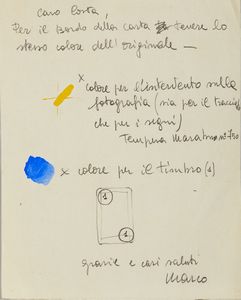 caro Costa,
Per il bordo della carta tenere lo
stesso colore dell'originale —
x colore per l'intervento sulla
fotografia (sia per il tracciato
che per i segni)
Tempera n°
x colore per il timbro (1)
1
1
grazie e cari saluti
Marco